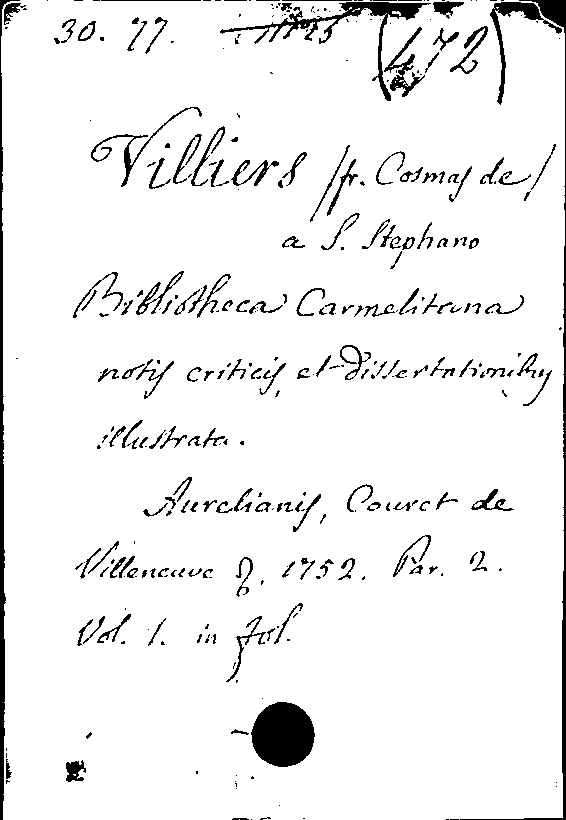 30. 77. (472)
Villiers /fr. Cosmas de/
a S. Stephano
Bibliotheca Carmelitana
notis criticis, et dissertationibus
illustrata.
Aurelianis, Couret de
Villeneuve 1752. Par. 2.
Vol. 1. in fol.